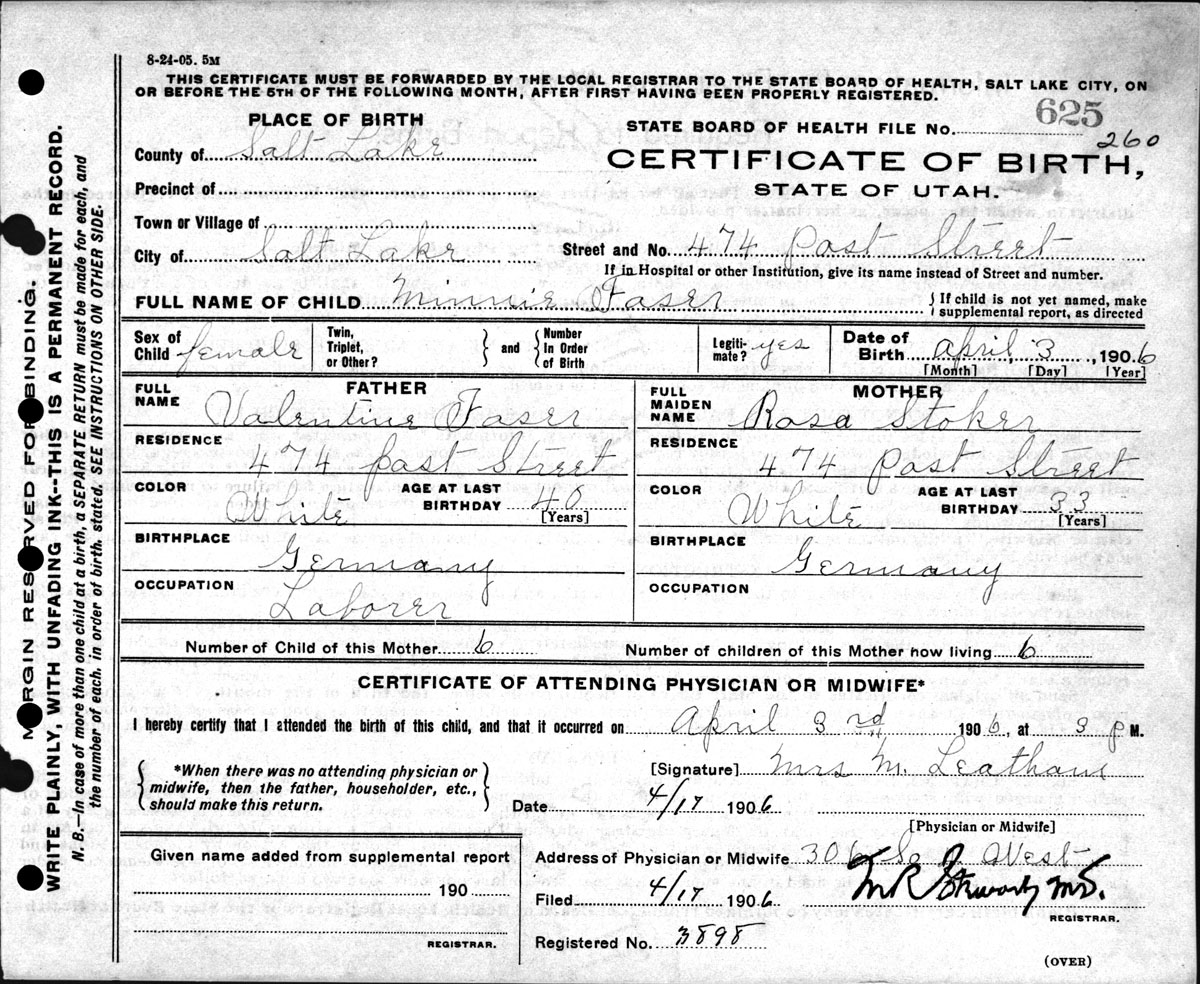 8-24-05. 5M
THIS CERTIFICATE MUST BE FORWARDED BY THE LOCAL REGISTRAR TO THE STATE BOARD OF HEALTH, SALT LAKE CITY, ON
OR BEFORE THE 5TH OF THE FOLLOWING MONTH, AFTER FIRST HAVING BEEN PROPERLY REGISTERED.
625
PLACE OF BIRTH
STATE BOARD OF HEALTH FILE No.
260
County of Salt Lake
CERTIFICATE OF BIRTH,
Precinct of
STATE OF UTAH.
Town or Village of
City of Salt Lake
Street and No. 474 Post Street
If in Hospital or other Institution, give its name instead of Street and number.
FULL NAME OF CHILD Minnie Faser
{ If child is not yet named, make
supplemental report, as directed
Sex of Child female
Twin, Triplet, or Other?
} and {
Number In Order of Birth
Legiti-mate? yes
Date of Birth April 3, 1906
[Month] [Day] [Year]
FATHER
FULL NAME Valentine Faser
RESIDENCE
474 Post Street
COLOR White
AGE AT LAST BIRTHDAY 40
[Years]
BIRTHPLACE
Germany
OCCUPATION
Laborer
MOTHER
FULL MAIDEN NAME Rosa Stoker
RESIDENCE
474 Post Street
COLOR White
AGE AT LAST BIRTHDAY 33
[Years]
BIRTHPLACE
Germany
OCCUPATION
Number of Child of this Mother 6
Number of children of this Mother now living 6
CERTIFICATE OF ATTENDING PHYSICIAN OR MIDWIFE*
I hereby certify that I attended the birth of this child, and that it occurred on April 3rd 1906, at 3 P M.
{ *When there was no attending physician or
midwife, then the father, householder, etc.,
should make this return. }
[Signature] Mrs M. Leatham
Date 4/17 1906
[Physician or Midwife]
Given name added from supplemental report
190
REGISTRAR.
Address of Physician or Midwife 306 So West
Filed 4/17 1906
REGISTRAR.
Registered No. 3898
(OVER)
MARGIN RESERVED FOR BINDING.
WRITE PLAINLY, WITH UNFADING INK--THIS IS A PERMANENT RECORD.
N. B.—In case of more than one child at a birth, a SEPARATE RETURN must be made for each, and
the number of each, in order of birth, stated. SEE INSTRUCTIONS ON OTHER SIDE.